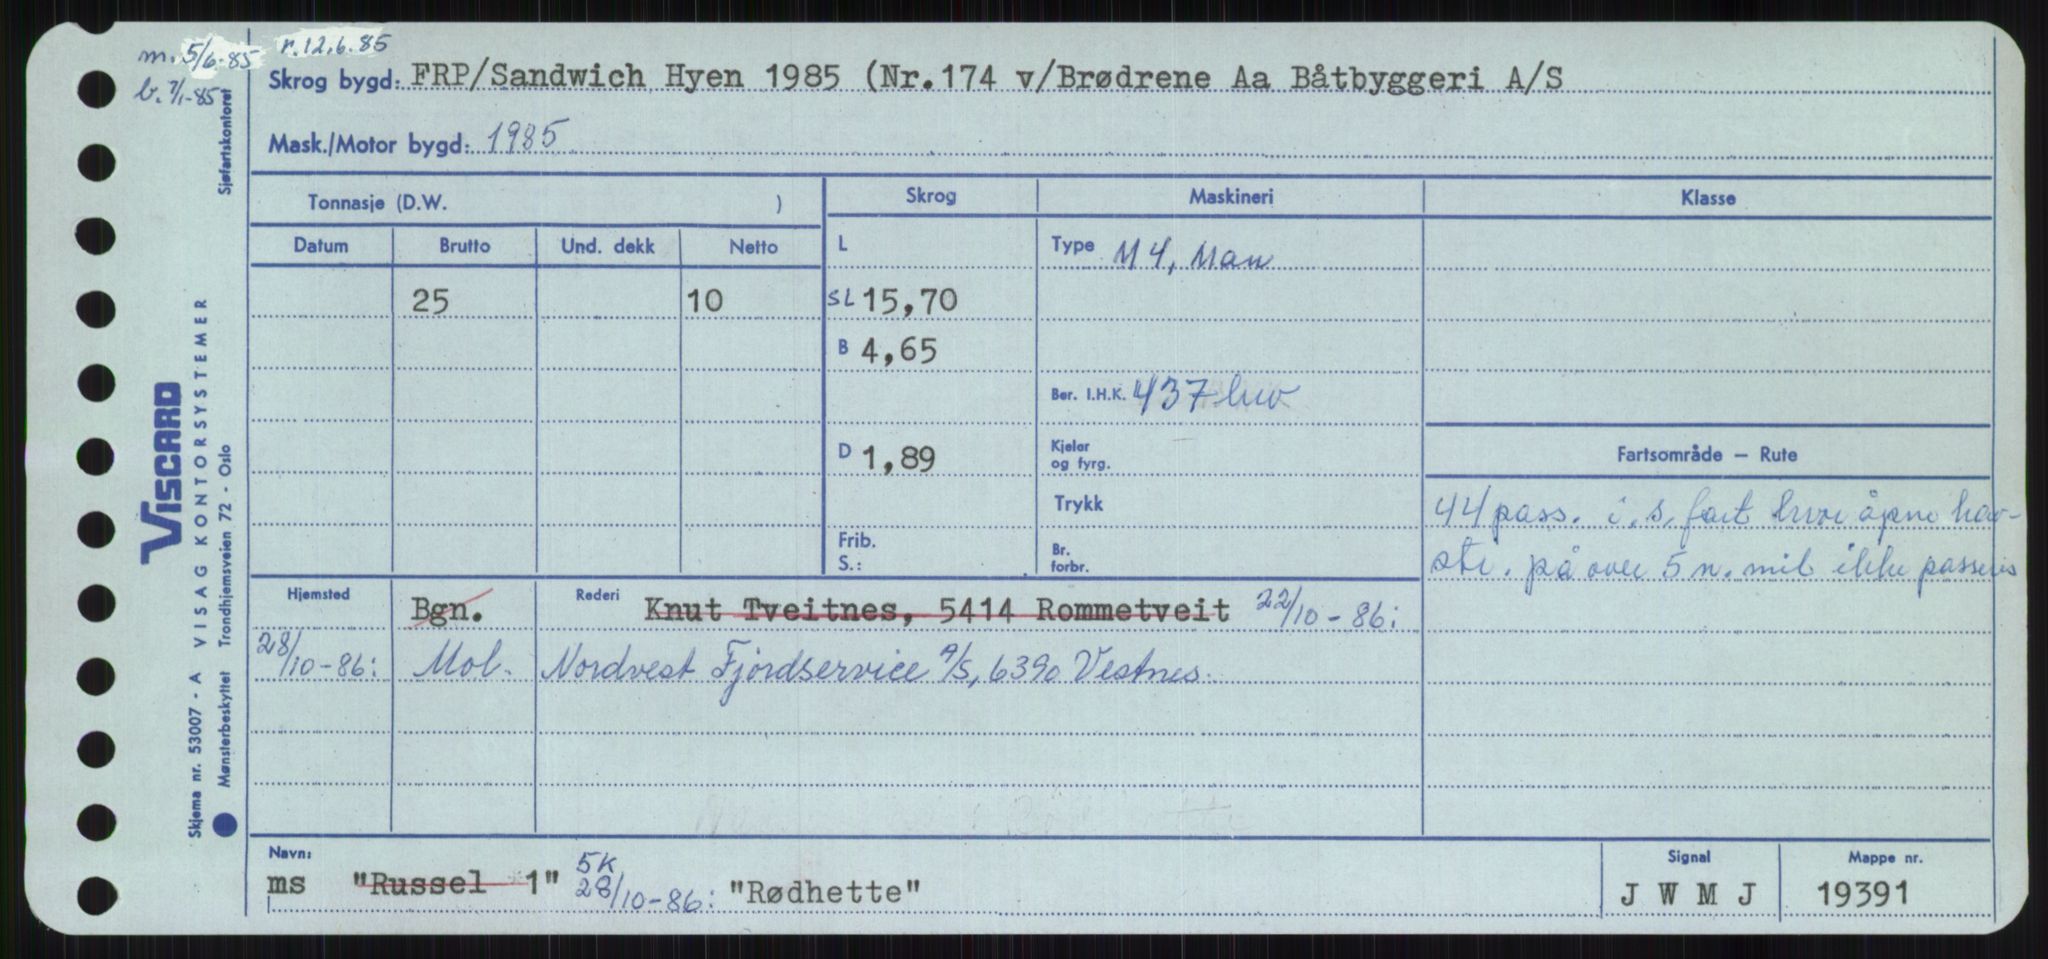 m. 5/6-85 r. 12.6.85
b. 7/1-85
Skrog bygd: FRP/Sandwich Hyen 1985 (Nr.174 v/Brødrene Aa Båtbyggeri A/S
Mask./Motor bygd: 1985
Tonnasje (D.W. )
Skrog Maskineri Klasse
Datum Brutto Und. dekk Netto
L
Type M 4, Man
25 10 SL 15,70
B 4,65
Ber. I.H.K. 437 hw
D 1,89
Kjeler
og fyrg.
Fartsområde – Rute
Trykk
44 pass. i. s. fart hvor åpne hav-
Frib.
S.:
Br.
forbr.
str. på over 5 n. mil ikke passeres
Hjemsted Bgn. Rederi Knut Tveitnes, 5414 Rommetveit 22/10-86:
28/10-86: Mol. Nordvest Fjordservice A/S, 6390 Vestnes.
Navn:
ms "Russel 1" SK 28/10-86: "Rødhette"
Signal
J W M J
Mappe nr.
19391
Sjøfartskontoret
VISCARD
VISAG KONTORSYSTEMER
Trondhjemsveien 72 - Oslo
Skjema nr. 53007 - A
Mønsterbeskyttet